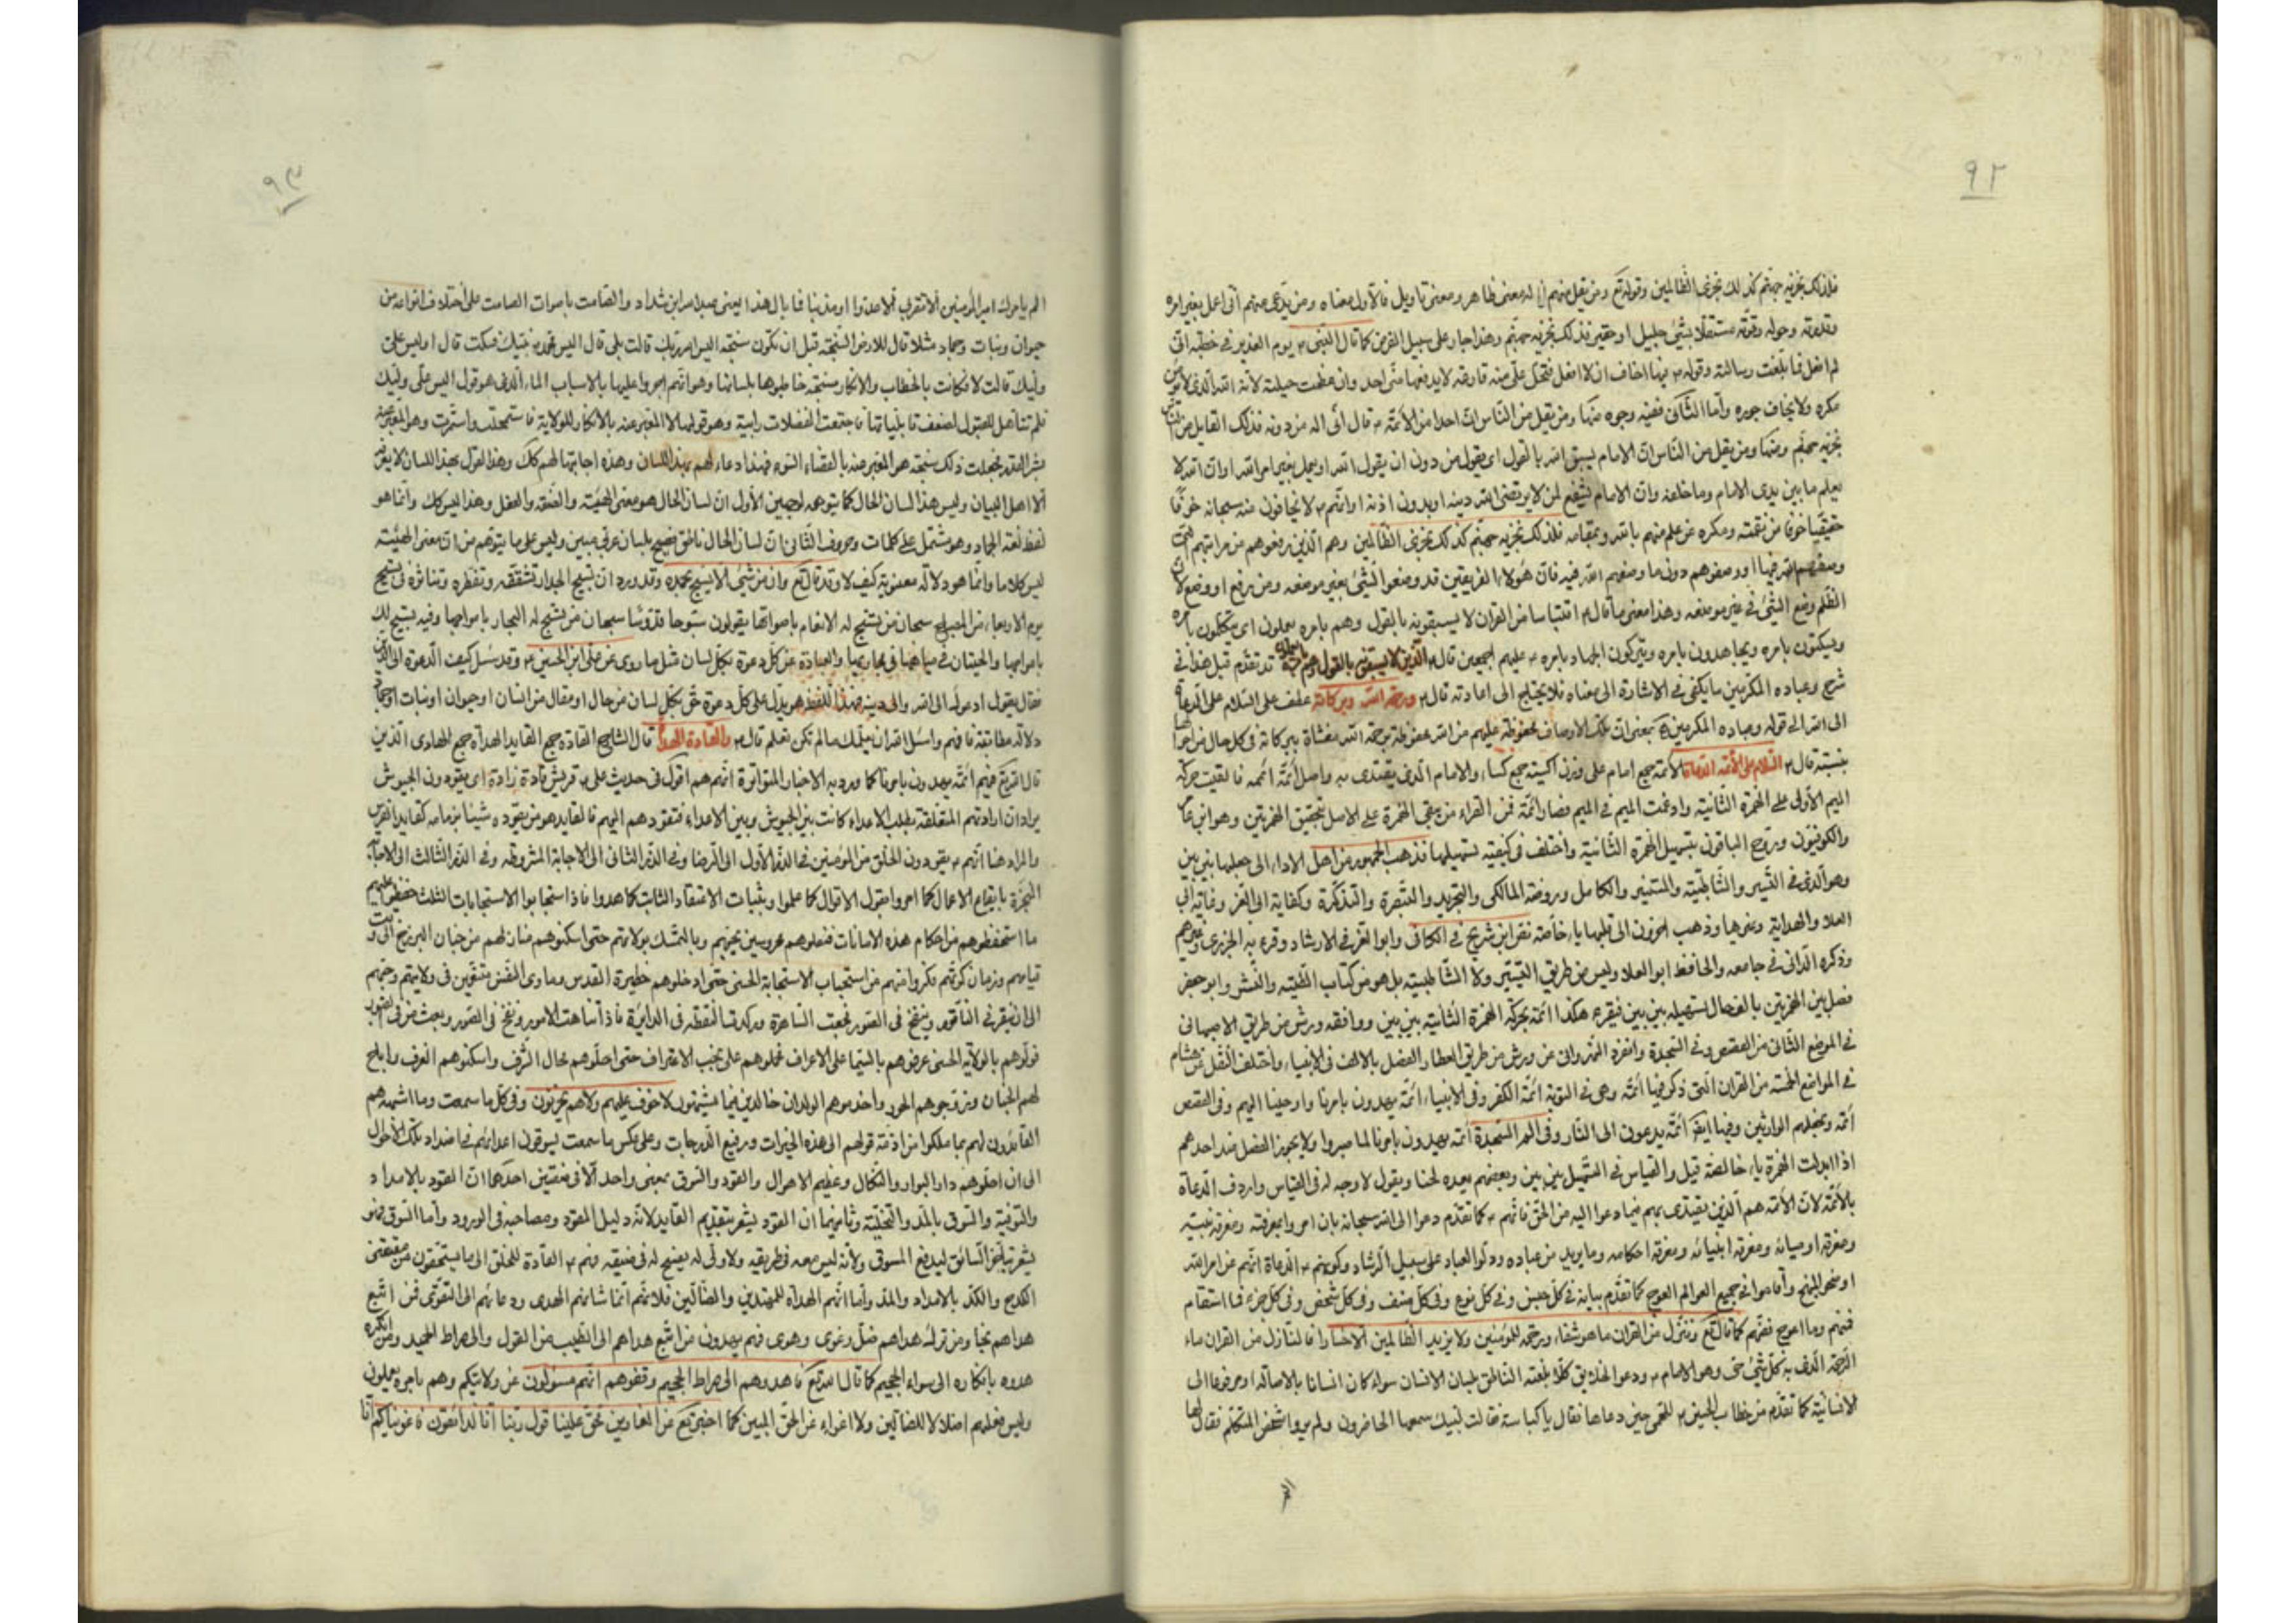 ٩٢
فذلك نجزيه جهنم كذلك نجزى الظالمين وقوله تع ومن يقل منهم له معنى ظاهر ومعنى تاويل فالأول معناه ومن يدّعى منهم انّى اعمل بغير امره
وقدرته وحوله وقوّته مستقلّا بشئ جليل او حقير فذلك نجزيه جهنّم وهذا جار على سبيل الفرض كما قال النّبى ص يوم الغدير فى خطبته انّى
لم افعل فما بلّغت رسالته وقوله اخاف ان لا افعل فتحلّ علىّ منه قارعة لا يدفعها عنّى احد وان عظمت حيلته لأنّه الله الّذى لا يؤمن
مكره ولا يخاف جوره وأمّا الثّانى ففيه وجوه منها ومن يقل من النّاس انّ احدا من الأئمّة ع قال انّى اله من دونه فذلك القايل من النّاس
نجزيه جهنّم ومنها ومن يقل من النّاس انّ الامام يسبق الله بالقول اى يقول من دون ان يقول الله او يعمل بغير امر الله او انّ الله لا
يعلم ما بين يدى الامام وما خلفه وانّ الامام يشفع لمن لا يرتضى الله دينه او بدون اذنه او انّهم ع لا يخافون منه سبحانه خوفًا
حقيقيّا خوفا من نقمته ومكره عن علم منهم بالله وبمقامه فذلك نجزيه جهنّم كذلك نجزى الظّالمين وهم الّذين رفعوهم من مراتبهم الّتى
وضعهم الله فيها او وضعوهم دون ما وضعهم الله فيه فانّ هؤلاء الفريقين قد وضعوا الشّئ بغير موضعه ومن يرفع او وضع لانّ
الظّلم وضع الشّئ فى غير موضعه وهذا معنى ما قال ع اقتباسا من القران لا يسبقونه بالقول وهم بامره يعملون اى يتكلّمون بامره
ويسكتون بامره ويجاهدون بامره ويتركون الجهاد بامره ص عليهم اجمعين قال ع الّذين لا يسبقونه بالقول وهم بامره يعملون قد تقدّم قبل هذا فى
شرح وعباده المكرمين ما يكفى فى الاشارة الى معناه فلا يحتاج الى اعادته قال ع ورحمة الله وبركاته عطف على السّلام على الدّعاة
الى الله الى قوله وعباده المكرمين بمعنى انّ تلك الاوصاف محفوظة عليهم من الله محفوظة برحمة الله مغشاة ببركاته فى كلّ حال من احوالها
بنسبته قال ع السّلام على الأئمّة الدّعاة الأئمّة جمع امام على وزن اكسية جمع كساء والامام الّذى يقتدى به واصل أئمّة أئممة فالقيت حركة
الميم الأولى على الهمزة الثّانية وادغمت الميم فى الميم فصار أئمّة فمن القراء من يبقى الهمزة على الاصل بتحقيق الهمزتين وهو ابن عامر
والكوفيّون وروح الباقون بتسهيل الهمزة الثّانية واختلف فى كيفيّة تسهيلها فذهب الجمهور من اهل الاداء الى جعلها بين بين
وهو الّذى فى التّيسير والشّاطبيّة والمستنير والكامل وروضة المالكى والتجريد والتّبصرة والتّذكرة وكفاية ابى العز وغاية ابى
العلا والهداية وغيرها وذهب اخرون الى قلبها ياء خالصة نصّ ابن شريح فى الكافى وابو العزّ فى الارشاد وقرء به الجزرى وغيرهم
وذكره الدّانى فى جامعه والحافظ ابو العلا وليس من طريق التّيسير ولا الشّاطبيّة بل هو من كتاب الطّيّبة والنّشر وابو جعفر
فصل بين الهمزتين بالف حال تسهيله بين بين فيقرء هكذا ائمّة بحركة الهمزة الثّانية بين بين ووافقه ورش من طريق الاصبهانى
فى الموضع الثّانى من القصص وفى السّجدة وانفرد النّهروانى عن ورش من طريق العطّار الفصل بالالف فى الانبياء واختلف النّقل عن هشام
فى المواضع الخمسة من القران الّتى ذكر فيها ائمّة وهى فى التوبة ائمّة الكفر وفى الأنبياء ائمّة يهدون بامرنا واوحينا اليهم وفى القصص
أئمّة ونجعلهم الوارثين وفيها ايضا أئمّة يدعون الى النّار وفى الم السّجدة أئمّة يهدون بامرنا لمّا صبروا ولا يجوز الفصل عند احدهم
اذا ابدلت الهمزة ياء خالصة قيل والقياس فى التّسهيل بين بين وبعضهم يعده لحنا ويقول لا وجه له فى القياس واردف الدّعاة
بالأئمّة لانّ الأئمّة هم الّذين يقتدى بهم فيما دعوا اليه من الحقّ فانّهم ع كما تقدّم دعوا الى الله سبحانه بان امروا بمعرفته ومعرفة نبيّه
ومعرفة اوصيائه ومعرفة انبيائه ومعرفة احكامه وما يريد من عباده ودلّوا العباد على سبيل الرّشاد وكونهم ع الدّعاة انّهم عن امر الله
اوضحوا المنهج وأقاموا فى جميع العوالم العوج كما تقدّم بيانه فى كلّ جنس وفى كلّ نوع وفى كلّ صنف وفى كلّ شخص وفى كلّ جزء فما استقام
فبهم وما اعوج فعنهم كما قال تع وننزّل من القران ما هو شفاء ورحمة للمؤمنين ولا يزيد الظّالمين الّا خسارا فالنّازل من القران ماء
الرّحمة الّذى به كلّ شئ حىّ وهو الامام ع ودعوا الخلايق كلّا بلغته النّاطق بلسان الانسان سواء كان انسانا بالاصالة او مرفوعا الى
الانسانيّة كما تقدّم من خطاب الحسين ع للحمّى حين دعاها فقال يا كباسة فقالت لبّيك سمعها الحاضرون ولم يروا شخص المتكلّم فقال لها
٩٣
الم يامرك امير المؤمنين ألّا تقربى الّا عدوّا او مذنبا فما بال هذا يعنى عبد الله ابن شداد والصّامت باصوات الصّامت على اختلاف انواعه من
حيوان ونبات وجماد مثلا قال للارض السّبخة قبل ان تكون سبخة اليس الله ربّك قالت بلى قال اليس محمّد نبيّك فسكتت قال او ليس علىّ
وليّك قالت لا فكانت بالخطاب والانكار سبخة خاطبوها بلسانها وهو انّهم اجروا عليها بالاسباب الماء الّذى هو قول اليس علىّ وليّك
فلم تتأهل للقبول لضعف قابليّاتها فاجتمعت الفضلات رابية وهو قولها لا المعبّر عنه بالانكار للولاية فاستعجلت واشترت وهو المعبّر عنه
بشرّ القدر فجعلت ذلك سبخة هو المعبّر عنه بالقضاء السّوء فهذا دعاءهم لهم بهذا اللسان وهذه اجابتها لهم كك وهذا القول بهذا اللسان لا يعرفه
الّا اهل البيان وليس هذا لسان الحال كما يتوهّمه لوجهين الأوّل انّ لسان الحال هو معنى الهيئة والصّفة والفعل وهذا ليس كك وانّما هو
لفظ لغة الجماد وهو مشتمل على كلمات وحروف الثّانى انّ لسان الحال ناطق فصيح بلسان عربى مبين وليس على ما يتوهّم من انّ معنى الهيئة
ليس كلاما وانّما هو دلالة معنوية كيف لا وقد قال تع وان من شئ الّا يسبّح بحمده وقد ورد انّ تسبيح الجدار تشققه وتفطّره وتناثره فى تسبيح
يوم الاربعاء من المصباح سبحان من تسبّح له الانعام باصواتها يقولون سبّوحا قدّوسا سبحان من يسبّح له البحار بامواجها وفيه يسبّح لك
بامواجها والحيتان فى مياهها فى مجاريها والعبادة عن كلّ دعوة بكلّ لسان مثل ما روى عن علىّ ابن الحسين ع وقد سئل كيف الدّعوة الى الدّين
فقال يقول ادعوك الى الله والى دينه فهذا اللّفظ هو يدلّ على كلّ دعوة حقّ بكلّ لسان من حال او مقال من انسان او حيوان او نبات او جماد
دلالة مطابقة فافهم واسئل القران يعلّمك ما لم تكن تعلم قال ع والقادة الهداة قال الشّارح القادة جمع القايد الهداة جمع الهادى الّذين
قال الله تع فيهم ائمّة يهدون بامرنا كما ورد به الاخبار المتواترة انّهم هم اقول فى حديث على ع قريش قادة زادة اى يقودون الجيوش
يراد انّ ارادتهم المتعلّقة بطلب الاعداء كانت بين الجيوش وبين الاعداء فتقودهم اليهم فالقايد هو من يقود شيئا بزمامه كقايد الفرس
والمراد هنا انّهم ع يقودون الخلق من المؤمنين فى الذّر الأول الى الرضا وفى الذّر الثانى الى الاجابة المشروطة وفى الذّر الثالث الى الاجابة
بايقاع الاعمال كما امروا وبقول الاقوال كما علموا وبثبات الاعتقاد الثابت كما هدوا فاذا استجابوا الاستجابات الثلث حفظوا عليهم
ما استحفظوهم من احكام هذه الامانات فنقلوهم محروسين بحبّهم وبالتّمسّك بولايتهم حتى اسكنوهم منازلهم من جنان البرزخ الى وقت
قيامهم وزمان كرّتهم فكرّوا منهم من استجاب الاستجابة الحسنى حتى ادخلوهم حظيرة القدس وماوى النّفس متنعّمين فى ولايتهم وحبّهم
الى ان ينقر فى الناقور وينفخ فى الصّور فجعت السّاهرة ودكّت النّقطة فى الدائرة فاذا تناهت الامور ونفخ فى الصّور وبعث من فى القبور
فولّوهم بالولاية الحسنى عرفوهم بالسّيما على الاعراف فحملوهم على نجب الاعتراف حتى احلّوهم محال الشّرف واسكنوهم الغرف واباح
لهم الجنان وزوّجوهم الحور واخدموهم الولدان خالدين فيما يشتهون لا خوف عليهم ولا هم يحزنون وفى كلّ ما سمعت وما اشبهه هم
القائدون لهم بما ملكوا من ازمّة قولهم الى هذه الخيرات ورفيع الدّرجات وعلى عكس ما سمعت يسوقون اعدائهم فى اضداد تلك الأحوال
الى ان احلّوهم دار البوار والنّكال وعظيم الاهوال والقود والسّوق بمعنى واحد الّا فى معنيين احدهما انّ القود بالامداد
والتّوفية والسّوق بالمدّ والتّخلية وثانيهما انّ القود يشعر بتقديم القايد لانّه دليل المقود ومصاحبه فى الورود وأمّا السّوق فهو
يشعر بتأخّر السّائق ليدفع المسوق ولأنّه ليس معه فى طريقه ولا ولىّ له يفتح له فى ضيقه فهم ع القادة للخلق الى ما يستحقّون من مقتضى
الكدح والكدّ بالامداد والمدّ وأمّا انّهم الهداة للمهتدين والضّالّين فلانّهم انّما شانهم الهدى ودعائهم الى التّقوى فمن اتّبع
هداهم نجا ومن ترك هداهم ضلّ وغوى وهوى فهم يهدون من اتّبع هداهم الى الطّيّب من القول والى صراط الحميد ومن انكره
هدوه بانكاره الى سواء الجحيم كما قال الله تع فاهدوهم الى صراط الجحيم وقفوهم انّهم مسؤلون عن ولايتكم وهم بامره يعملون
وليس فعلهم اضلالا للضالّين ولا اغواء عن الحقّ المبين كما اخبر تع عن الغاوين فحقّ علينا قول ربّنا انّا لذائقون فاغويناكم انّا